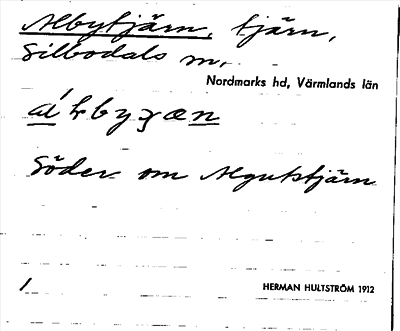 Albytjärn, tjärn,
Silbodals sn.
Nordmarks hd, Värmlands län
Söder om Algutstjärn
1
HERMAN HULTSTRÖM 1912